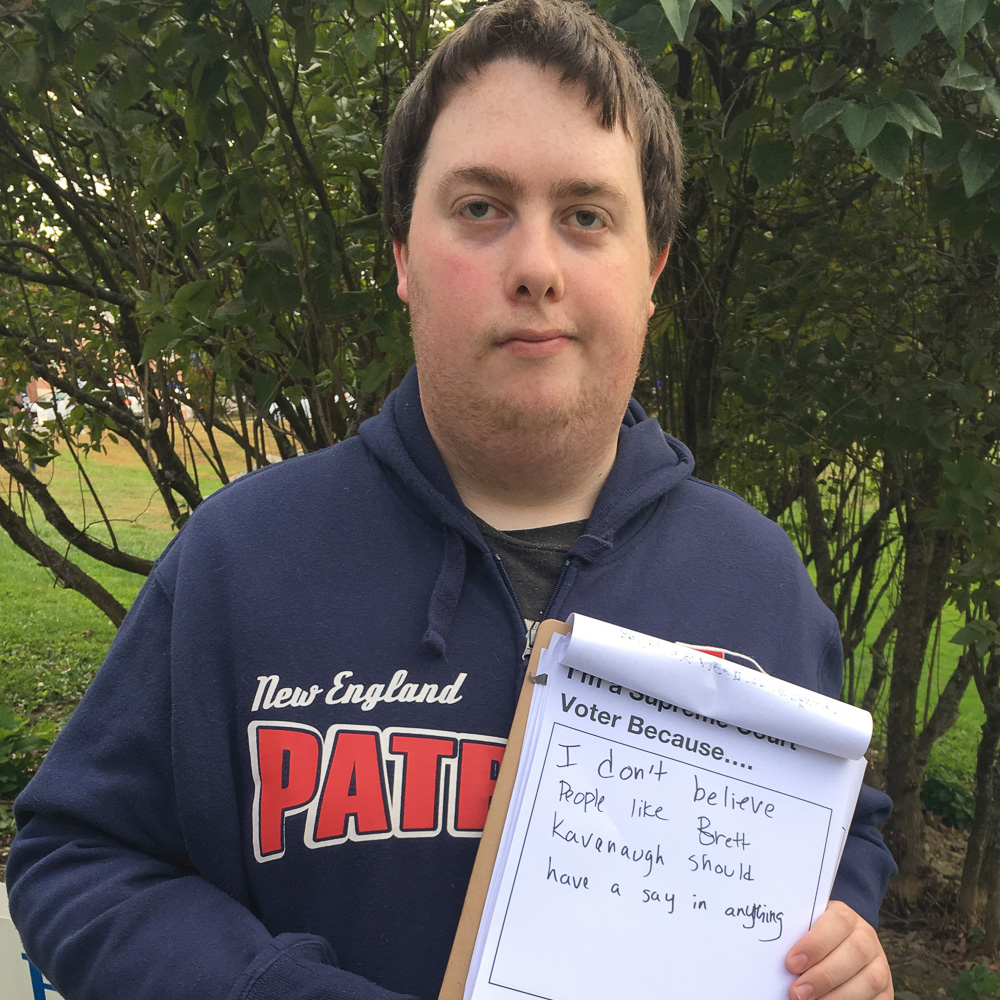 New England
PAT
I'm a Supreme Court
Voter Because....
I don't believe
People like Brett
Kavanaugh should
have a say in anything